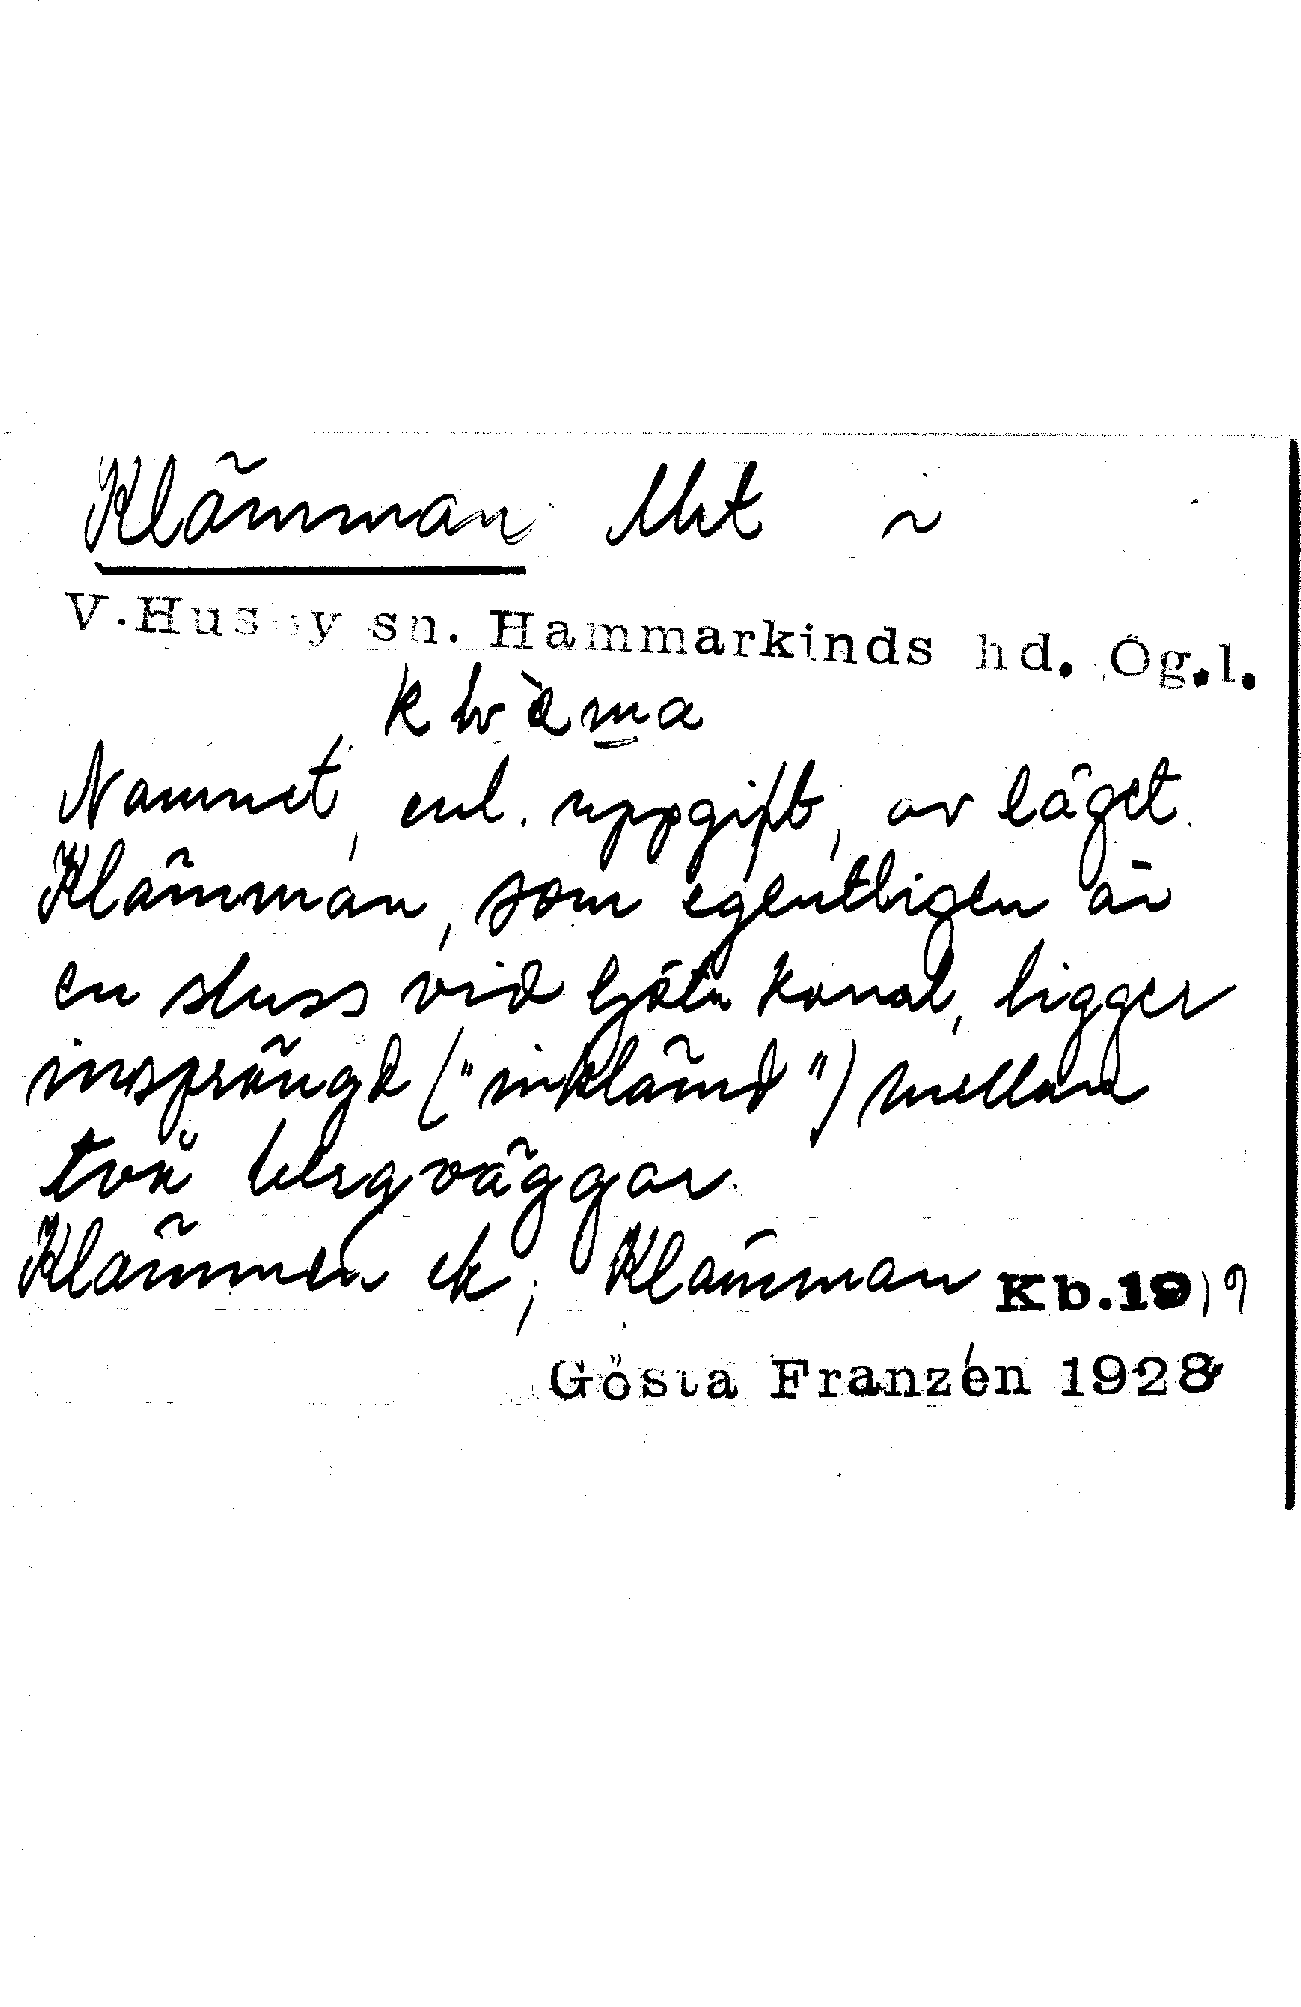 Klämman Uht ~
V. Husby sn. Hammarkinds hd. Ög.l.
Namnet, enl. uppgift, av läget.
Klämman, som egentligen är
en sluss vid Göta kanal, ligger
insprängd ("inklämd") mellan
två bergväggar.
Klämmen ek; Klämman Kb.19
Gösta Franzén 1928